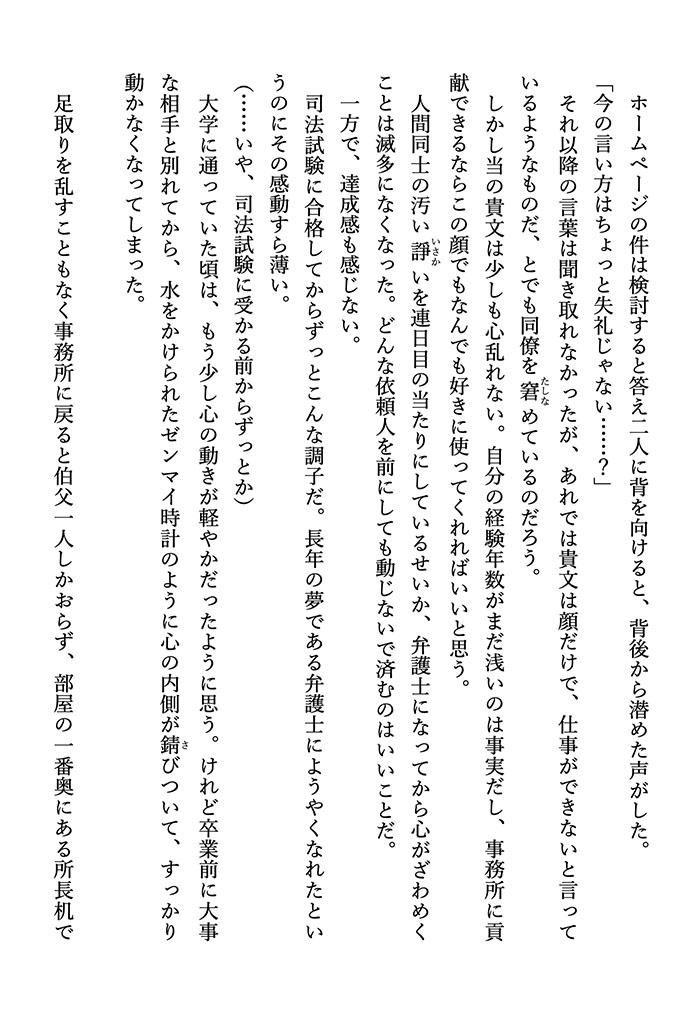 ホームページの件は検討すると答え二人に背を向けると、背後から潜めた声がした。
「今の言い方はちょっと失礼じゃない……？」
それ以降の言葉は聞き取れなかったが、あれでは貴文は顔だけで、仕事ができないと言って
いるようなものだ、とでも同僚を窘めているのだろう。
しかし当の貴文は少しも心乱れない。自分の経験年数がまだ浅いのは事実だし、事務所に貢
献できるならこの顔でもなんでも好きに使ってくれればいいと思う。
人間同士の汚い諍いを連日目の当たりにしているせいか、弁護士になってから心がざわめく
ことは滅多になくなった。どんな依頼人を前にしても動じないで済むのはいいことだ。
一方で、達成感も感じない。
司法試験に合格してからずっとこんな調子だ。長年の夢である弁護士にようやくなれたとい
うのにその感動すら薄い。
（……いや、司法試験に受かる前からずっとか）
大学に通っていた頃は、もう少し心の動きが軽やかだったように思う。けれど卒業前に大事
な相手と別れてから、水をかけられたゼンマイ時計のように心の内側が錆びついて、すっかり
動かなくなってしまった。
足取りを乱すこともなく事務所に戻ると伯父一人しかおらず、部屋の一番奥にある所長机で